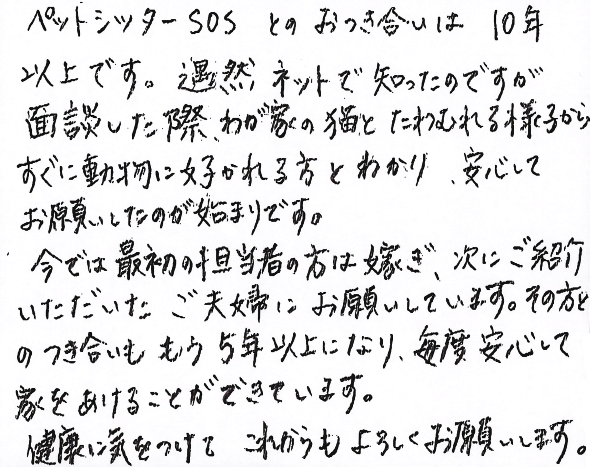 ペットシッターSOS とのおつき合いは 10年
以上です。遇然ネットで知ったのですが
面談した際、わが家の猫とたわむれる様子から
すぐに動物に好かれる方とわかり、安心して
お願いしたのが始まりです。
今では最初の担当者の方は嫁ぎ、次にご紹介
いただいた ご夫婦にお願いしています。その方と
のつき合いももう5年以上になり、毎度安心して
家をあけることができています。
健康に気をつけて これからもよろしくお願いします。